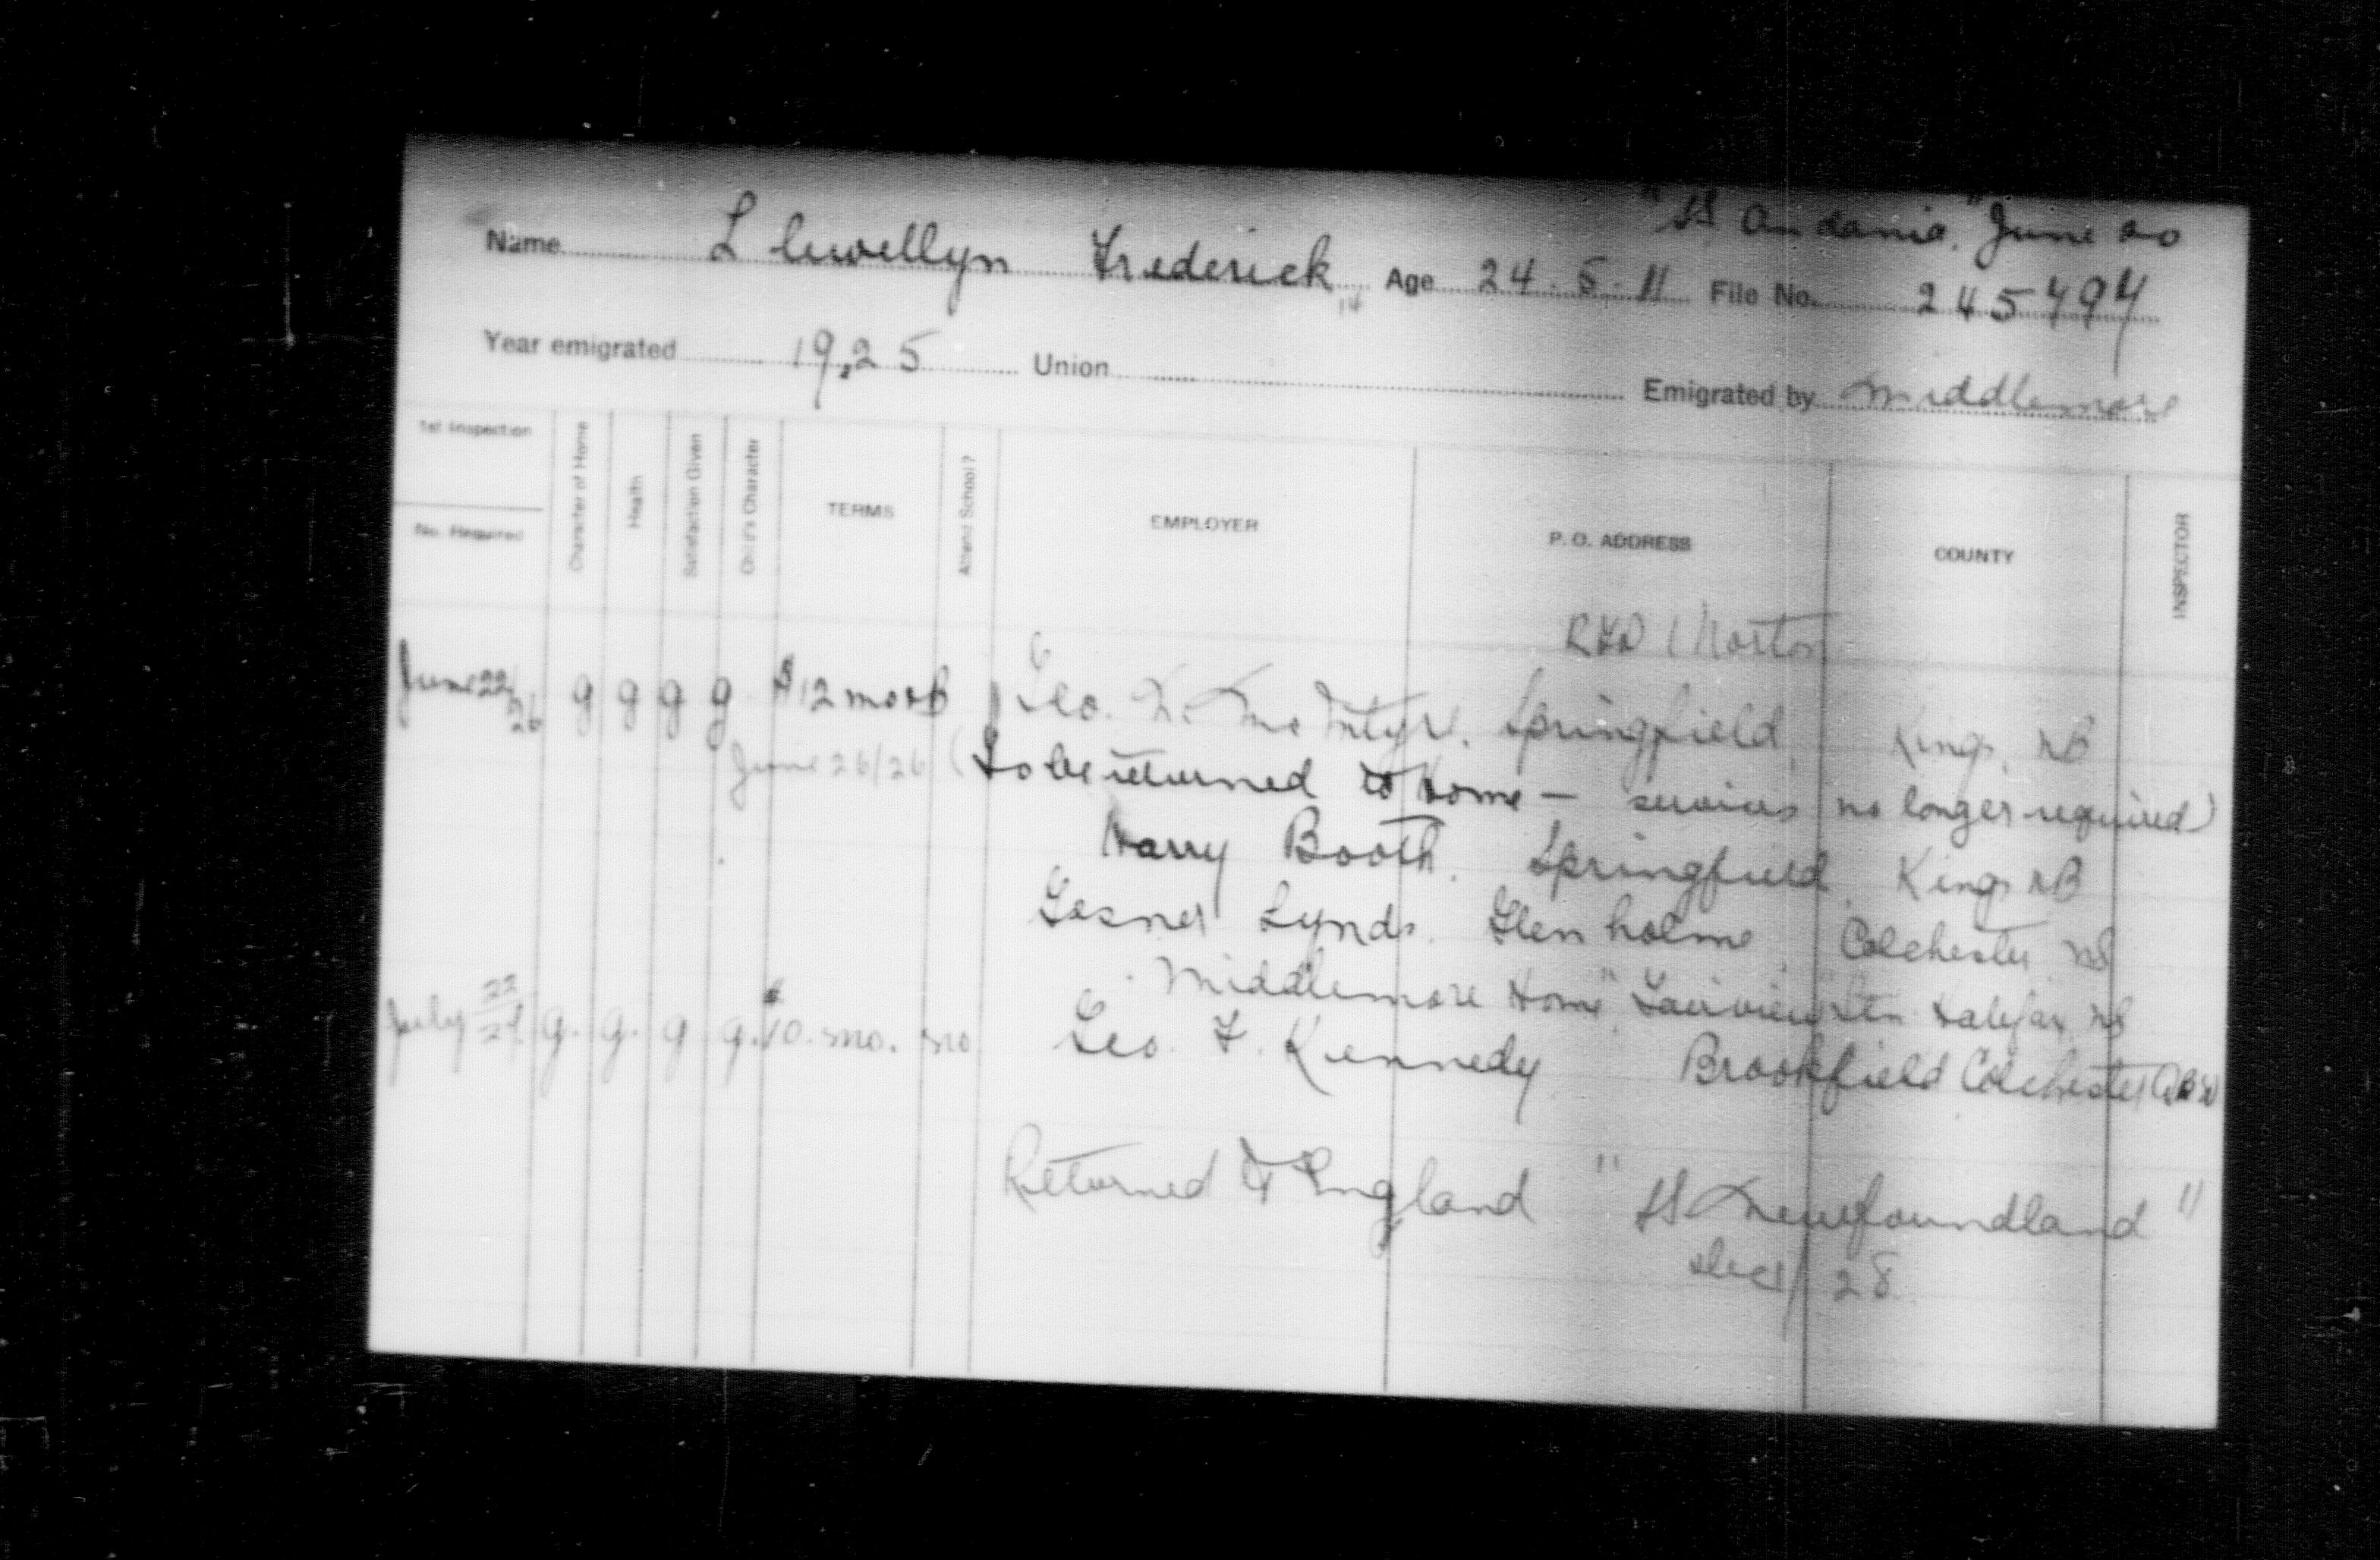 "SS Andania" June 20
Name Llewellyn Frederick Age 24.5.11 File No. 245794
14
Year emigrated 1925 Union Emigrated by Middlemore
1st Inspection
No. Required
Character of Home
Health
Satisfaction Given
Child's Character
TERMS
Attend School?
EMPLOYER
P. O. ADDRESS
COUNTY
INSPECTOR
RFD 1 Norton
June 22/26 g g g g $12 mo Geo. McIntyre. Springfield Kings. NB
June 26/26 (To be returned to Home — services no longer required)
Harry Booth. Springfield Kings NB
Gesner Lynds. Glenholme Colchester NS
"Middlemore Home" Fairview Stn Halifax NS
July 22/27. g. g. g g. $10. mo. no Geo. F. Kennedy Brookfield Colchester
Returned to England "SS Newfoundland"
Dec / 28